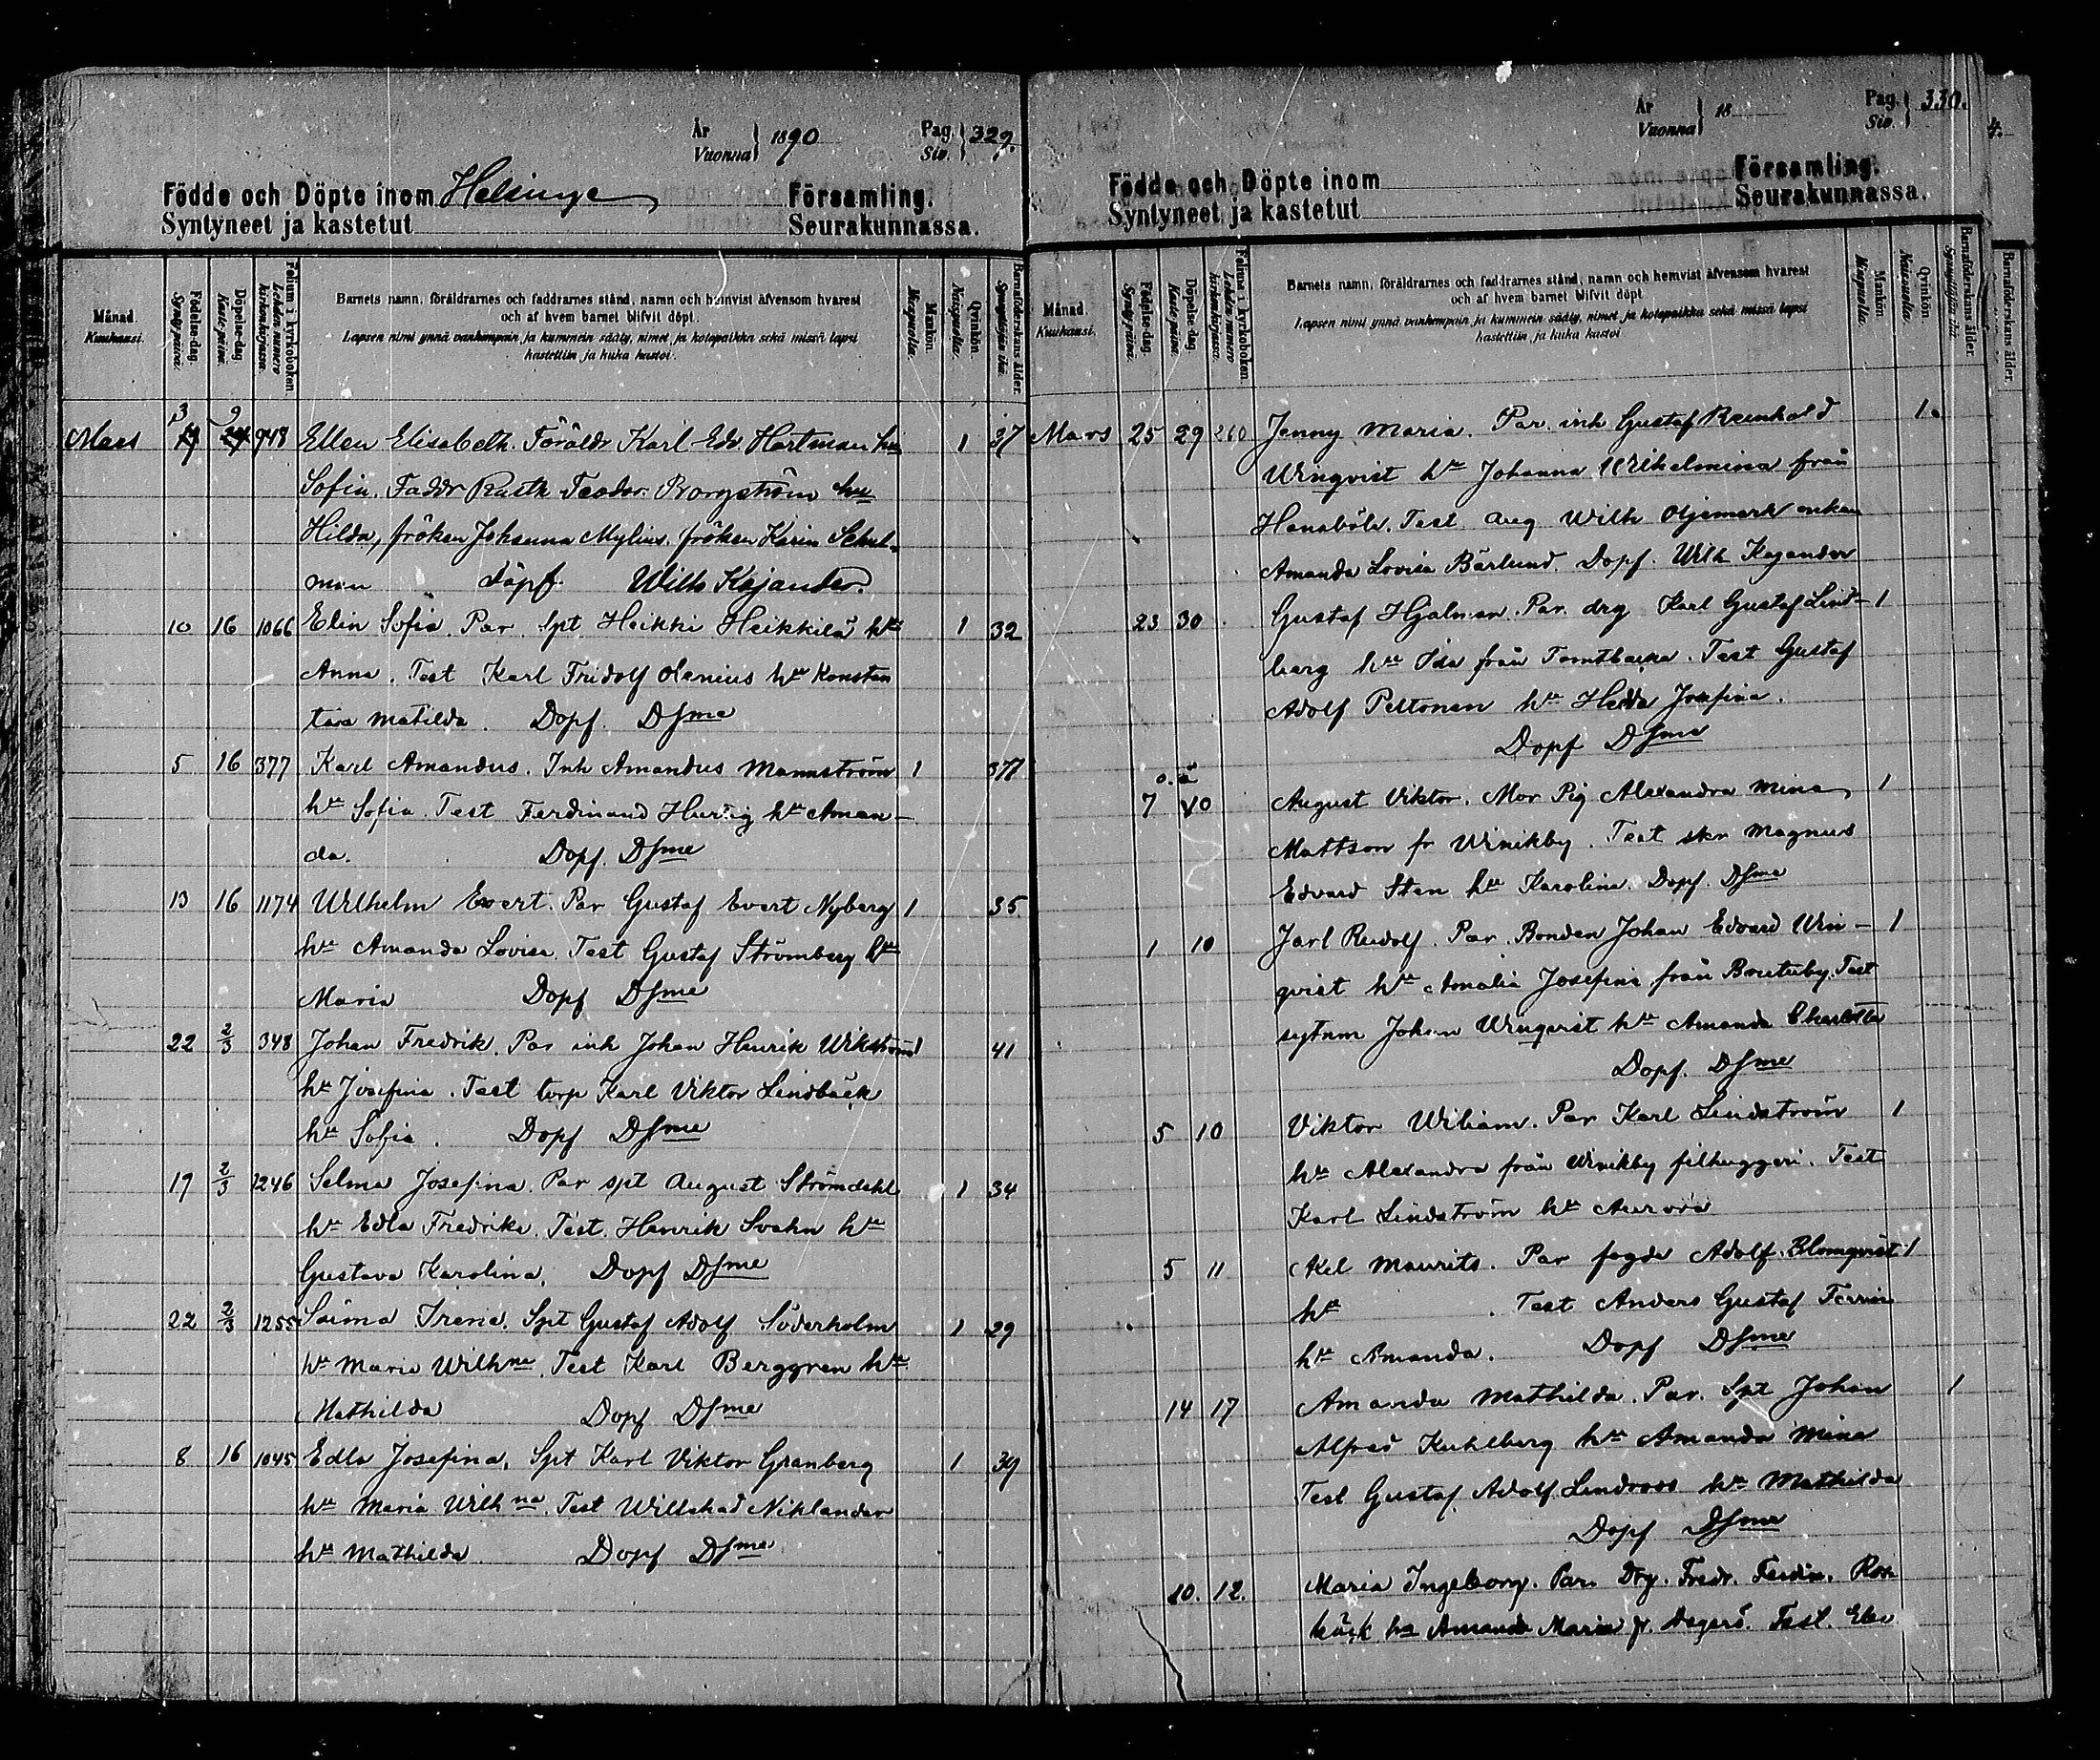 År
Vuonna 1890
Pag.
Siv. 329.
Födde och Döpte inom Helsinge Församling.
Syntyneet ja kastetut Seurakunnassa.
Månad. Kuukausi.
Födelse-dag. Syntypäivä.
Döpelse-dag. Kastepäivä.
Folium i kyrkoboken. Lehden numero kirkonkirjassa.
Barnets namn, föräldrarnes och faddrarnes stånd, namn och hemvist äfvensom hvarest
och af hvem barnet blifvit döpt.
Lapsen nimi ynnä vanhempain ja kummein sääty, nimet ja kotopaikka sekä missä lapsi
kastettiin ja kuka kastoi.
Mankön. Miespuolia.
Qvinkön. Naispuolia.
Barnaföderskans ålder. Synnyttäjän ikä.
3 9
Mars 948 Ellen Elisabeth. Föräldr Karl Edv. Hartman hu 1 37
Sofia. Faddr Teodor Borgström hu
Hilda, fröken Johanna Mylius. fröken Karin Schul-
man döpf. Wilh Kajander.
10 16 1066 Elin Sofia. Par. spt Heikki Heikkilä htr 1 32
Anna. Test Karl Fridolf Olenius htr Konstan
tava Matilda. Dopf. Dsme
5 16 377 Karl Amandus. Inh Amandus Mannström 1 37
htr Sofia. Test Ferdinand Hurtig htr Aman-
da. Dopf. Dsme
13 16 1174 Wilhelm Evert. Par Gustaf Evert Nyberg 1 35
htr Amanda Lovisa. Test Gustaf Strömberg htr
Maria Dopf Dsme
22 2/3 348 Johan Fredrik. Par inh Johan Henrik Wikström 1 41
htr Josefina. Test torp Karl Viktor Lindbäck
htr Sofia. Dopf Dsme
19 2/3 1246 Selma Josefina. Par spt August Strömdahl 1 34
htr Edla Fredrika. Test. Henrik Svahn htr
Gustava Karolina. Dopf Dsme
22 2/3 1255 Saima Irene. Spt Gustaf Adolf Söderholm 1 29
htr Maria Wilhna. Test Karl Berggren htr
Mathilda Dopf Dsme
8 16 1045 Edla Josefina. Spt Karl Viktor Granberg 1 39
htr Maria Wilhna. Test Willehad Niklander
htr Mathilda Dopf Dsme
År
Vuonna 18
Pag.
Siv. 330.
Födde och Döpte inom Församling.
Syntyneet ja kastetut Seurakunnassa.
Månad. Kuukausi.
Födelse-dag. Syntypäivä.
Döpelse-dag. Kastepäivä.
Folium i kyrkoboken. Lehden numero kirkonkirjassa.
Barnets namn, föräldrarnes och faddrarnes stånd, namn och hemvist äfvensom hvarest
och af hvem barnet blifvit döpt
Lapsen nimi ynnä vanhempain ja kummein sääty, nimet ja kotopaikka sekä missä lapsi
kastettiin ja kuka kastoi
Mankön. Miespuolia.
Qvinkön. Naispuolia.
Barnaföderskans ålder. Synnyttäjän ikä.
Mars 25 29 260 Jenny Maria. Par inh Gustaf Reinhold 1.
Winqvist htr Johanna Wilhelmina från
Hanaböle. Test aug Wilh Öjemark enkan
Amanda Lovisa Bärlund. Dopf. Wilh Kajander
23 30 Gustaf Hjalmar. Par. drg Karl Gustaf Lind- 1
berg htr Ida från Tomtbacka. Test Gustaf
Adolf Peltonen htr Hedda Josefina.
Dopf Dsme
o. ä
7 10 August Viktor. Mor Pig Alexandra Mina 1
Mattson fr Winikby. Test skr Magnus
Edvard Sten htr Karolina. Dopf. Dsme
1 10 Jarl Rudolf. Par. Bonden Johan Edvard Win- 1
qvist htr Amalia Josefina från Brutuby. Test
sytnm Johan Winqvist htr Amanda Charlotta
Dopf. Dsme
5 10 Viktor Wiliam. Par Karl Lindström 1
htr Alexandra från Winikby filhuggeri. Test
Karl Lindström htr Aurora
5 11 Axel Maurits. Par fogde Adolf Blomqvist 1
htr . Test Anders Gustaf
htr Amanda. Dopf Dsme
14 17 Amanda Mathilda. Par. Spt Johan 1
Alfred Kuhlberg htr Amanda Mina
Test Gustaf Adolf Lindroos htr Mathilda
Dopf Dsme
10. 12. Maria Ingeborg. Par. Drg. Fredr. Ferdin. Rön
bäck ha Amanda Maria fr. Degerö. Test. Elev